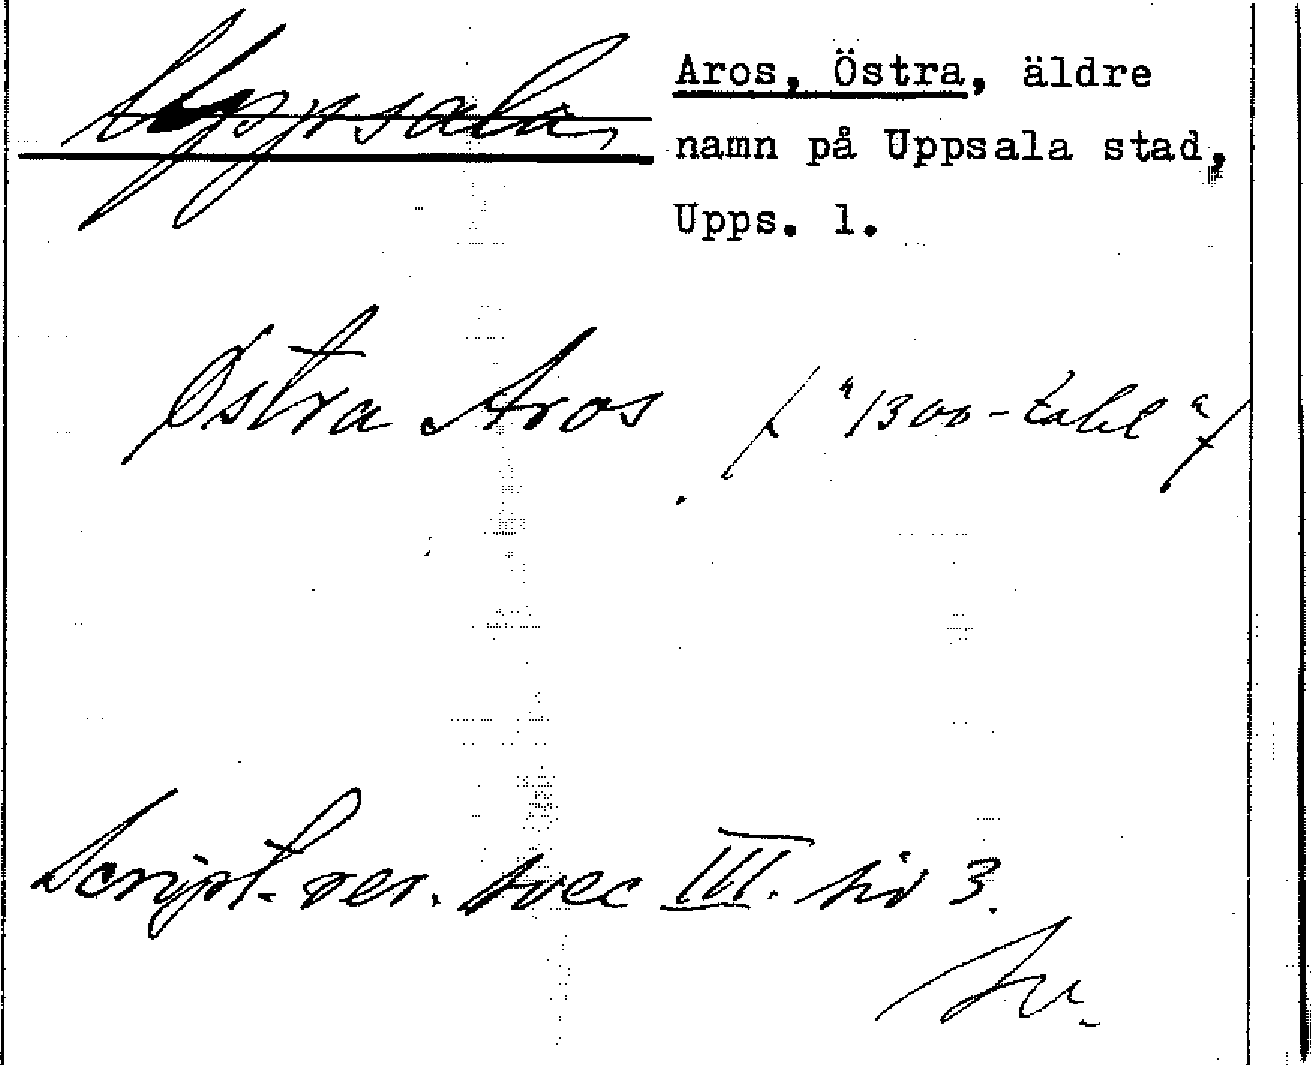 Uppsala,
Aros, Östra, äldre
namn på Uppsala stad,
Upps. l.
Östra Aros. ("1300-talet")
Script. rer. svec III. sid 3.